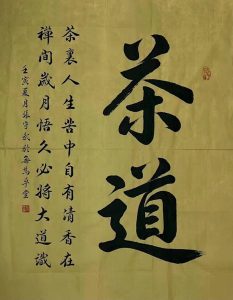 茶道
茶裏人生苦中自有清香在
禪間歲月悟久必將大道識
壬寅夏月張守